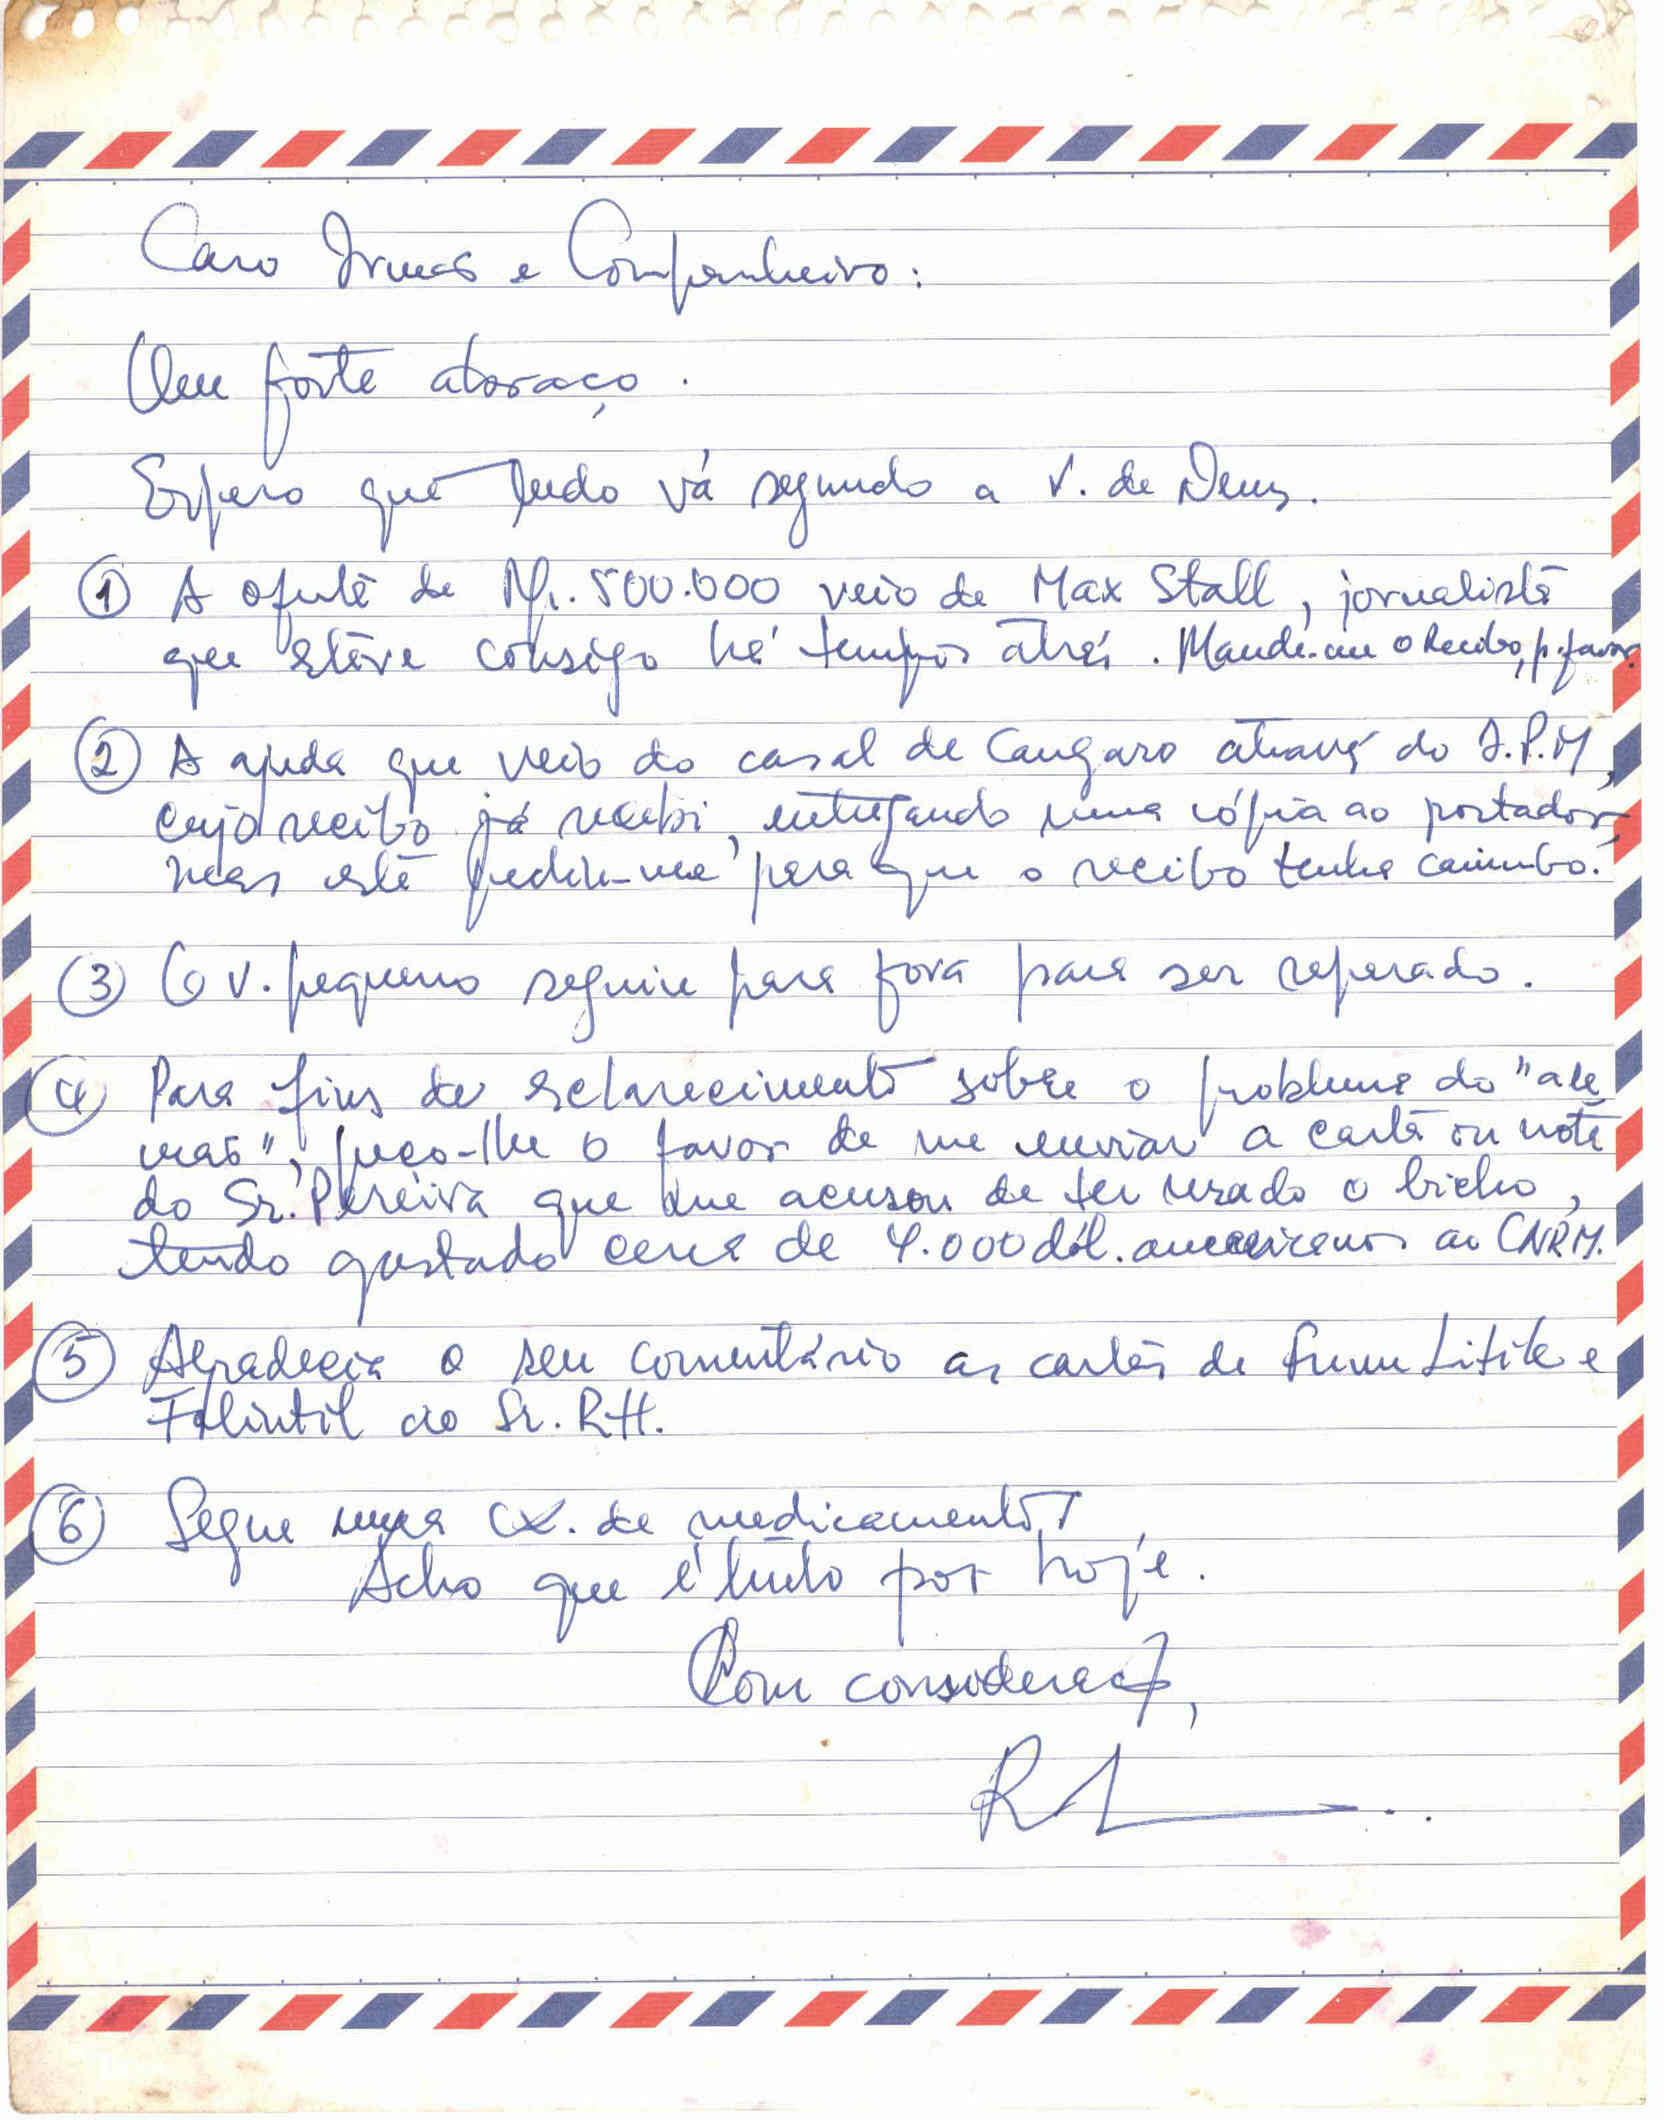 Caro Irmão e Companheiro:
Um forte abraço.
Espero que tudo vá segundo a V. de Deus.
① A oferta de Rp. 500.000 veio de Max Stall, jornalista
que esteve consigo há tempos atrás. Mande-me o Recibo, p. favor.
② A ajuda que veio do casal de Canguro através do J.P.M,
cujo recibo já recebi, entregando uma cópia ao portador,
mas este pediu-me para que o recibo tenha carimbo.
③ O v. pequeno seguiu para fora para ser reparado.
④ Para fins de esclarecimento sobre o problema do "ale
mão", peço-lhe o favor de me enviar a carta ou nota
do Sr. Pereira que me acusou de ter usado o bicho,
tendo gastado cerca de 4.000 dól. americanos ao CNRM.
⑤ Agradecia o seu comentário às cartas de Lifile e
Falintil ao Sr. RH.
⑥ Segue uma cx. de medicamentos,
Acho que é tudo por hoje.
Com consideração,